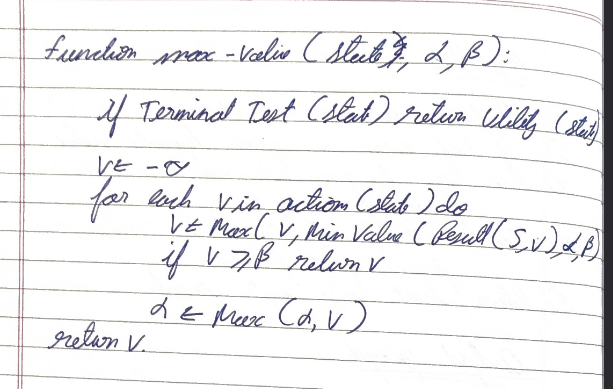 function max-value (state, α, β):
if Terminal Test (state) return Utility (state)
V ← -∞
for each v in action (state) do
V ← Max( V, Min Value ( Result ( S, V), α, β)
if V ≥ β return V
α ← Max (α, V)
return V.